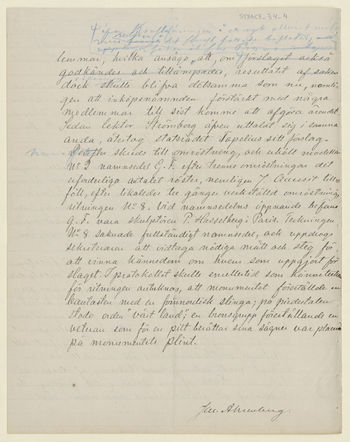 STRACE_34_4
lemmar, hvilka ansågo „att, om förslaget också
godkändes och tillämpades, resultatet af saken
dock skulle blifva detsamma som nu, nämli-
gen att inköpsnämnden förstärkt med några
medlemmar till sist komme att afgöra ärendet.
Sedan lektor Strömborg äfven uttalat sig i samma
anda, återtog statsrådet Topelius sitt förslag.
skred till omröstning, och erhöll modellen
№ 2 namnsedel G. F. efter trenne omröstningar det
erforderliga antalet röster, nemligen 7. Ånessit till-
föll, efter likaledes tre gånger verkställd omröstning,
ritningen № 8. Vid namnsedelns öppnande befans
G. F. vara skulptören P. Hasselberg i Paris. Teckningen
№ 8 saknade fullständigt namnsedel, och uppdrogs
sekreteraren att vidtaga nödiga mått och steg för
att vinna kännedom om hvem som uppgjort för-
slaget. I protokollet skulle emellertid som kännetecken
för ritningen antecknas, att monumentet föreställde en
bautasten med en fornnordisk slinga; på piedestalen
stodo orden „vårt land"; en bronsgrupp föreställande en
veteran som för en pilt berättar sina sägner var placerad
på monumentets plint.
Ahrenberg.